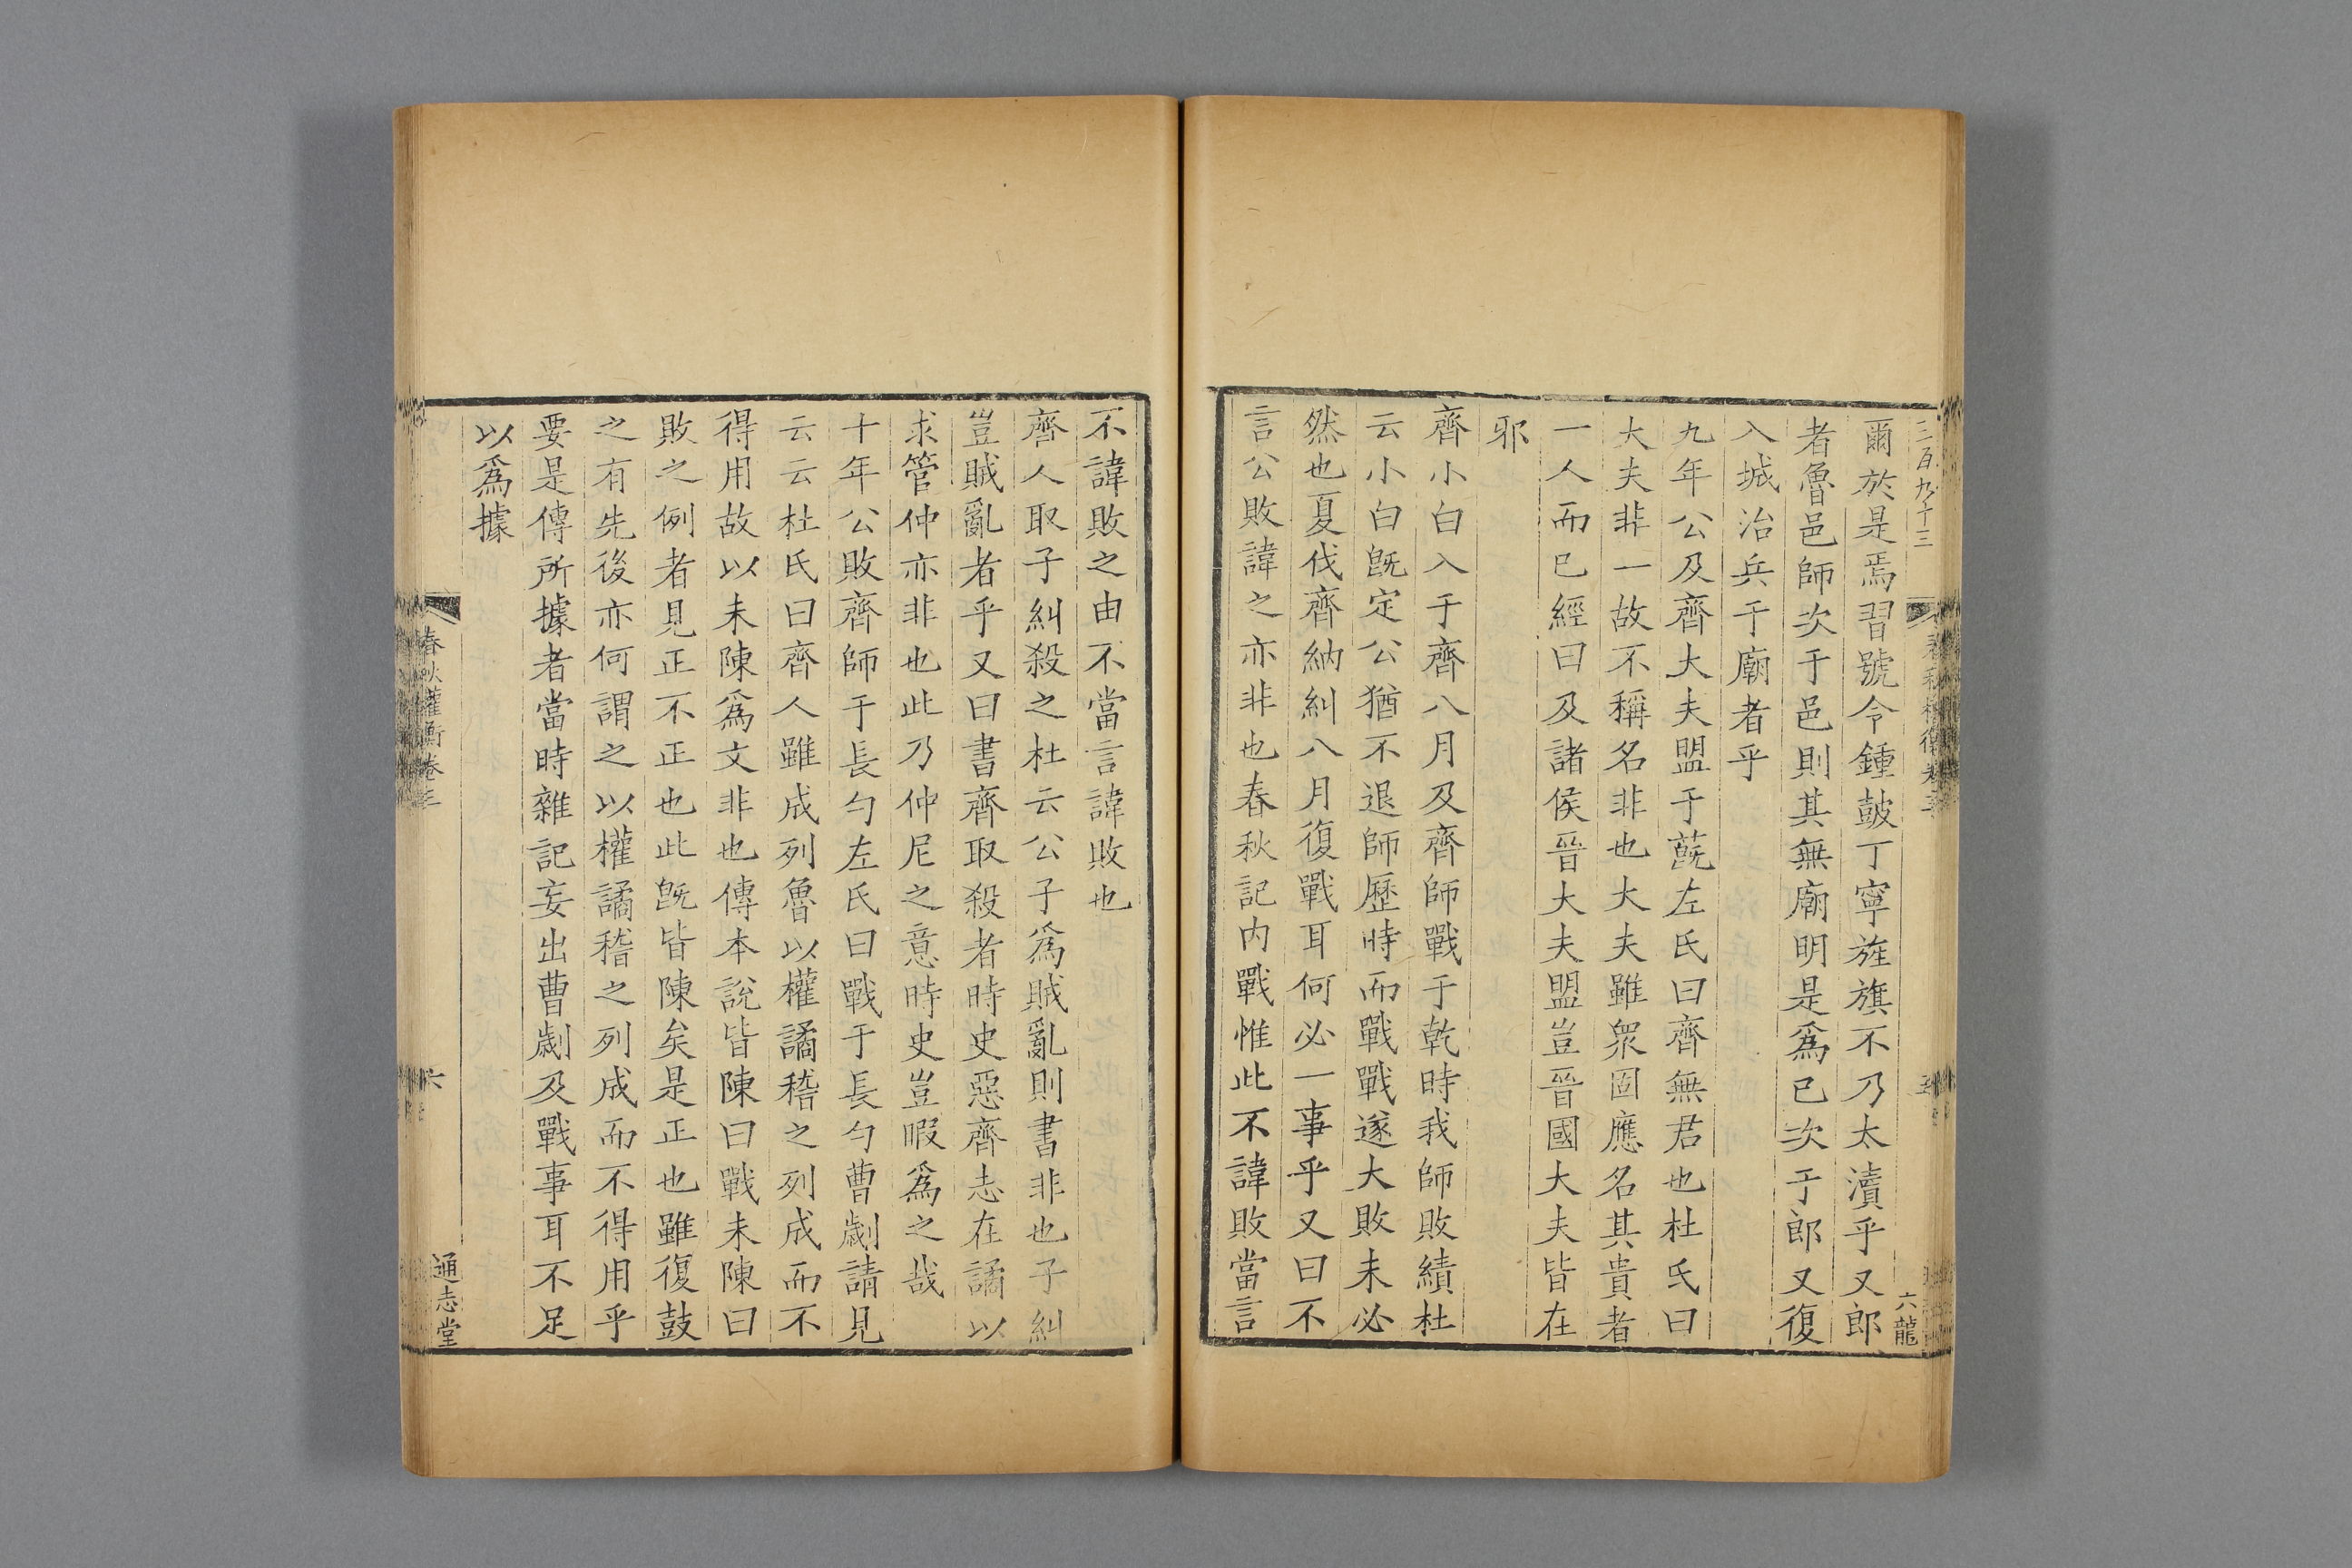 三百九十三
六龍
爾於是焉習號令鍾鼓丁寧旌旗不乃太瀆乎又郎
者魯邑師次于邑則其無廟明是爲已次于郎又復
入城治兵于廟者乎
九年公及齊大夫盟于蔇左氏曰齊無君也杜氏曰
大夫非一故不稱名非也大夫雖衆固應名其貴者
一人而已經曰及諸侯晉大夫盟豈晉國大夫皆在
邪
齊小白入于齊八月及齊師戰于乾時我師敗績杜
云小白旣定公猶不退師歷時而戰戰遂大敗未必
然也夏伐齊納糾八月復戰耳何必一事乎又曰不
言公敗諱之亦非也春秋記内戰惟此不諱敗當言
不諱敗之由不當言諱敗也
齊人取子糾殺之杜云公子爲賊亂則書非也子糾
豈賊亂者乎又曰書齊取殺者時史惡齊志在譎以
求管仲亦非也此乃仲尼之意時史豈暇爲之哉
十年公敗齊師于長勺左氏曰戰于長勺曹劌請見
云云杜氏曰齊人雖成列魯以權譎稽之列成而不
得用故以未陳爲文非也傳本說皆陳曰戰未陳曰
敗之例者見正不正也此旣皆陳矣是正也雖復鼓
之有先後亦何謂之以權譎稽之列成而不得用乎
要是傳所據者當時雜記妄出曹劌及戰事耳不足
以爲據
春秋權衡卷三
六
通志堂